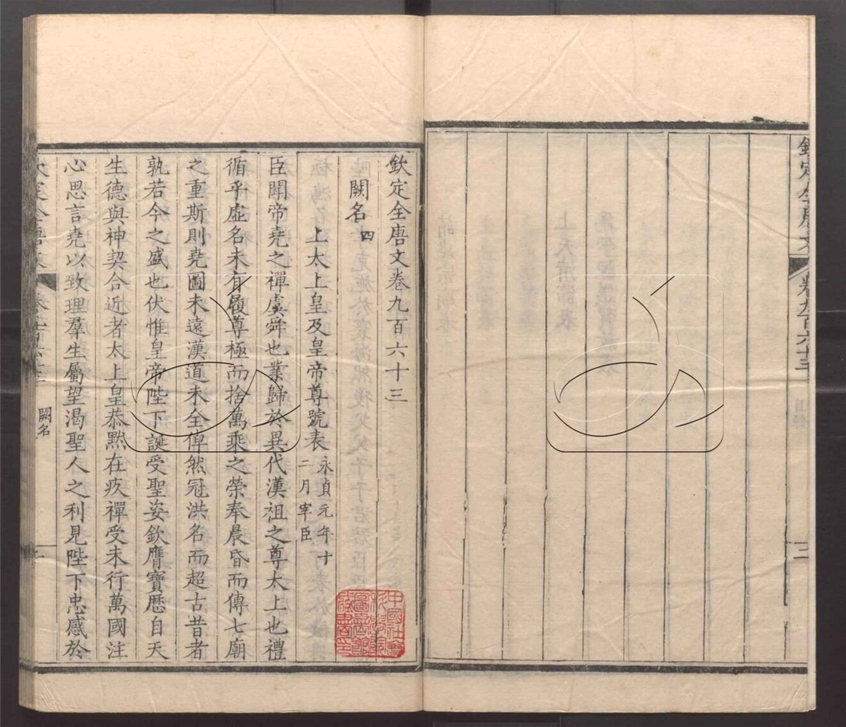 欽定全唐文
卷九百六十三
三
欽定全唐文卷九百六十三
闕名四
上太上皇及皇帝尊號表
永貞元年十
二月宰臣
臣聞帝堯之禪虞舜也業歸於異代漢祖之尊太上也禮
循乎虛名未有履尊極而捨萬乘之榮奉晨昏而傳七廟
之重斯則堯圖未遠漢道未全倬然冠洪名而超古昔者
孰若今之盛也伏惟皇帝陛下誕受聖姿欽膺寶歷自天
生德與神契合近者太上皇恭黙在疚禪受未行萬國注
心思言堯以致理羣生屬望渴聖人之利見陛下忠感於
欽定全唐文
闕名